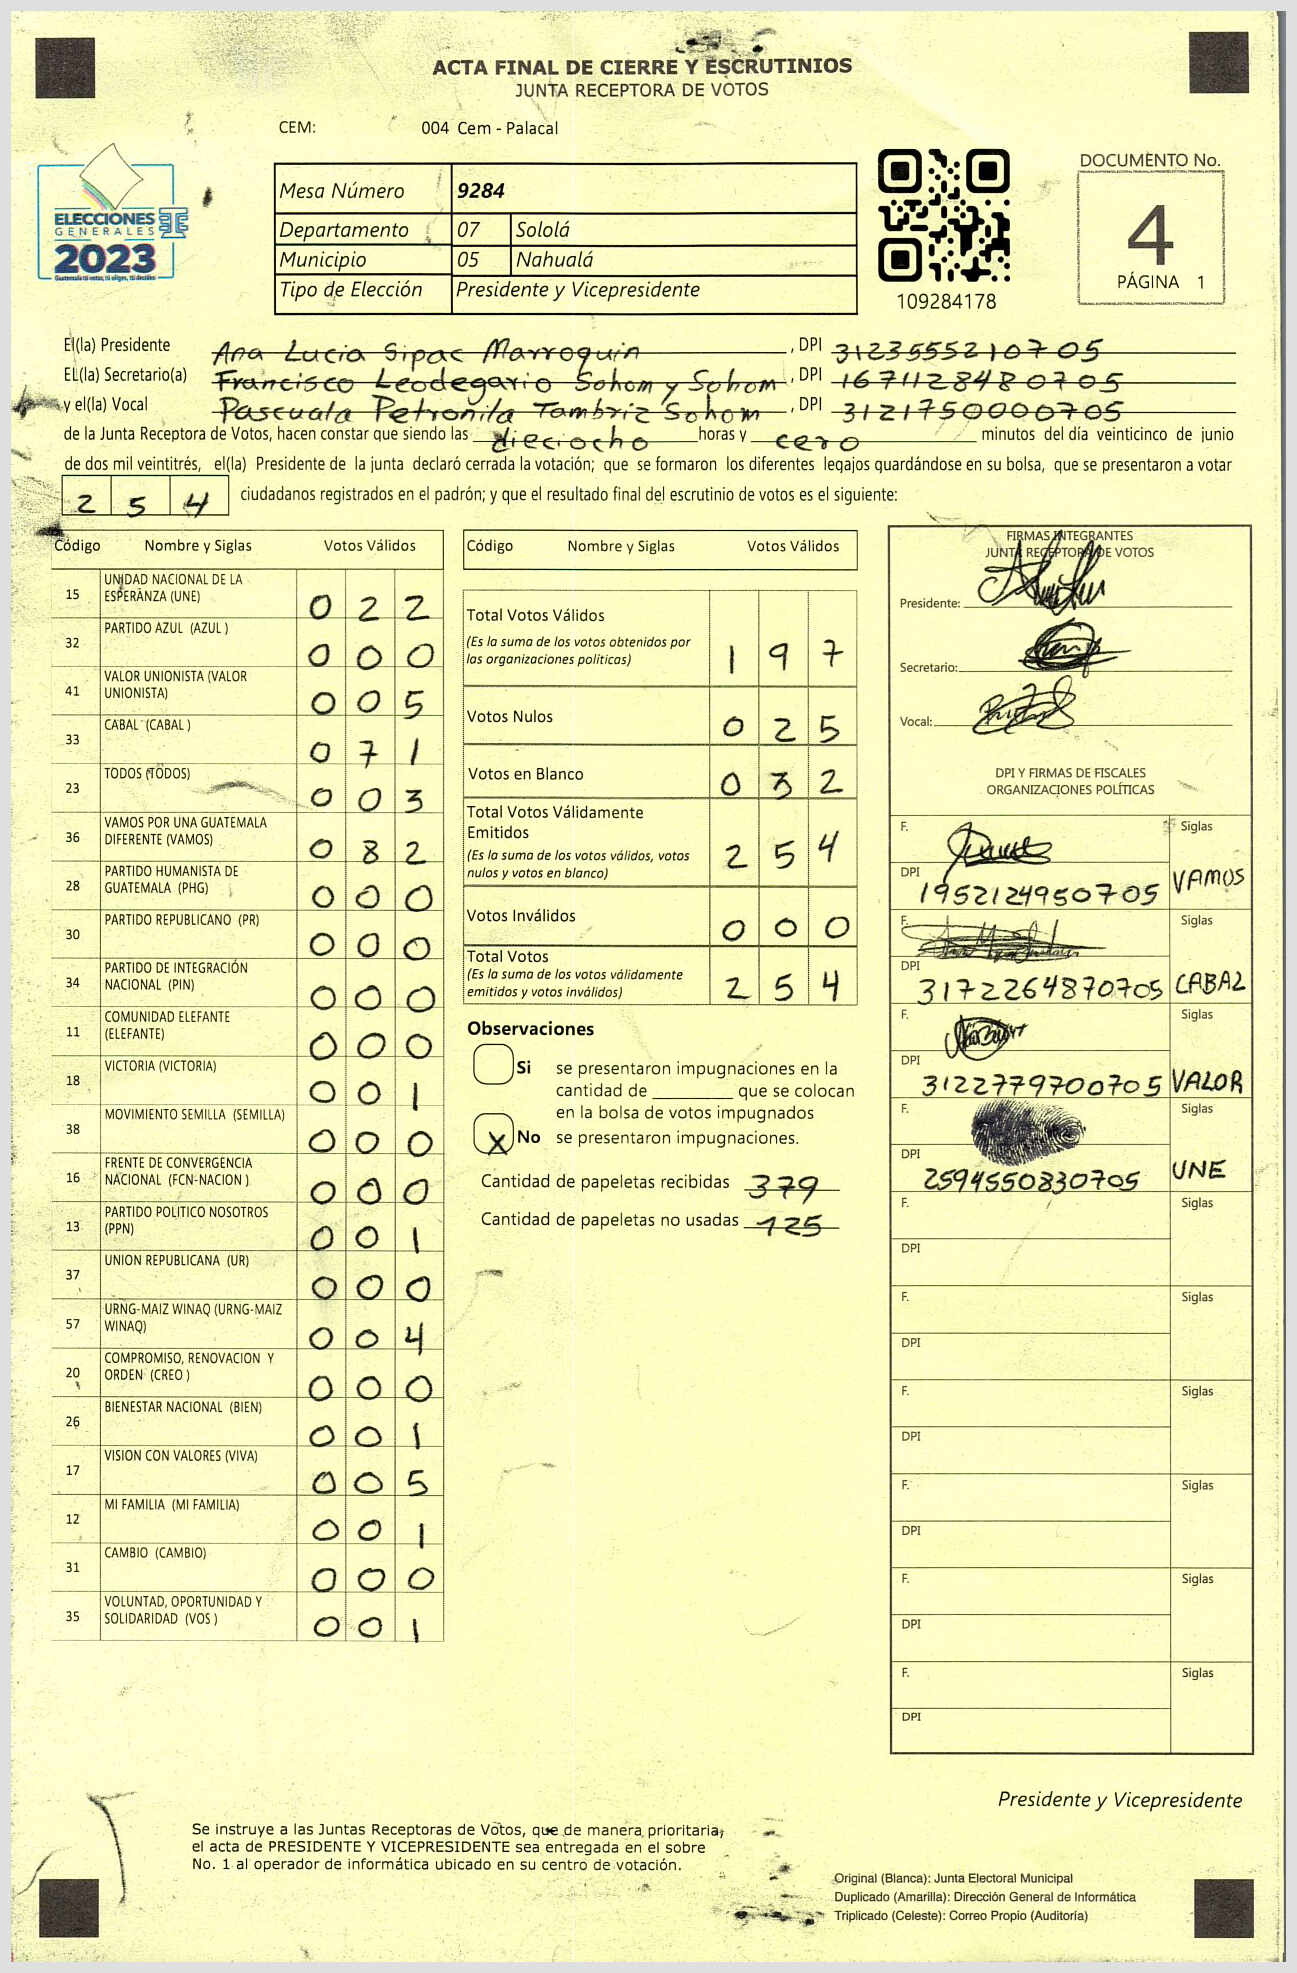 ACTA FINAL DE CIERRE Y ESCRUTINIOS
JUNTA RECEPTORA DE VOTOS
CEM: 004 Cem - Palacal
ELECCIONES
GENERALES
2023
Guatemala tú votas, tú eliges, tú decides
Mesa Número 9284
Departamento 07 Sololá
Municipio 05 Nahualá
Tipo de Elección Presidente y Vicepresidente
109284178
DOCUMENTO No.
4
PÁGINA 1
El(la) Presidente Ana Lucia Sipac Marroquin, DPI 3123555210705
EL(la) Secretario(a) Francisco Leodegario Sohom y Sohom, DPI 1671128480705
y el(la) Vocal Pascuala Petronila Tambriz Sohom, DPI 3121750000705
de la Junta Receptora de Votos, hacen constar que siendo las dieciocho horas y cero minutos del día veinticinco de junio
de dos mil veintitrés, el(la) Presidente de la junta declaró cerrada la votación; que se formaron los diferentes legajos guardándose en su bolsa, que se presentaron a votar
254 ciudadanos registrados en el padrón; y que el resultado final del escrutinio de votos es el siguiente:
Código Nombre y Siglas Votos Válidos
15 UNIDAD NACIONAL DE LA ESPERANZA (UNE) 022
32 PARTIDO AZUL (AZUL ) 000
41 VALOR UNIONISTA (VALOR UNIONISTA) 005
33 CABAL (CABAL ) 071
23 TODOS (TODOS) 003
36 VAMOS POR UNA GUATEMALA DIFERENTE (VAMOS) 082
28 PARTIDO HUMANISTA DE GUATEMALA (PHG) 000
30 PARTIDO REPUBLICANO (PR) 000
34 PARTIDO DE INTEGRACIÓN NACIONAL (PIN) 000
11 COMUNIDAD ELEFANTE (ELEFANTE) 000
18 VICTORIA (VICTORIA) 001
38 MOVIMIENTO SEMILLA (SEMILLA) 000
16 FRENTE DE CONVERGENCIA NACIONAL (FCN-NACION ) 000
13 PARTIDO POLITICO NOSOTROS (PPN) 001
37 UNION REPUBLICANA (UR) 000
57 URNG-MAIZ WINAQ (URNG-MAIZ WINAQ) 004
20 COMPROMISO, RENOVACION Y ORDEN (CREO ) 000
26 BIENESTAR NACIONAL (BIEN) 001
17 VISION CON VALORES (VIVA) 005
12 MI FAMILIA (MI FAMILIA) 001
31 CAMBIO (CAMBIO) 000
35 VOLUNTAD, OPORTUNIDAD Y SOLIDARIDAD (VOS ) 001
Código Nombre y Siglas Votos Válidos
Total Votos Válidos 197
(Es la suma de los votos obtenidos por
las organizaciones políticas)
Votos Nulos 025
Votos en Blanco 032
Total Votos Válidamente
Emitidos 254
(Es la suma de los votos válidos, votos
nulos y votos en blanco)
Votos Inválidos 000
Total Votos 254
(Es la suma de los votos válidamente
emitidos y votos inválidos)
Observaciones
Si se presentaron impugnaciones en la
cantidad de ________ que se colocan
en la bolsa de votos impugnados
X No se presentaron impugnaciones.
Cantidad de papeletas recibidas 379
Cantidad de papeletas no usadas 125
FIRMAS INTEGRANTES
JUNTA RECEPTORA DE VOTOS
Presidente:
Secretario:
Vocal:
DPI Y FIRMAS DE FISCALES
ORGANIZACIONES POLÍTICAS
F. Siglas
DPI 1952124950705 VAMOS
F. Siglas
DPI 3172264870705 CABAL
F. Siglas
DPI 3122779700705 VALOR
F. Siglas
DPI 2594550830705 UNE
F. Siglas
DPI
F. Siglas
DPI
F. Siglas
DPI
F. Siglas
DPI
F. Siglas
DPI
F. Siglas
DPI
Presidente y Vicepresidente
Se instruye a las Juntas Receptoras de Votos, que de manera prioritaria,
el acta de PRESIDENTE Y VICEPRESIDENTE sea entregada en el sobre
No. 1 al operador de informática ubicado en su centro de votación.
Original (Blanca): Junta Electoral Municipal
Duplicado (Amarilla): Dirección General de Informática
Triplicado (Celeste): Correo Propio (Auditoría)